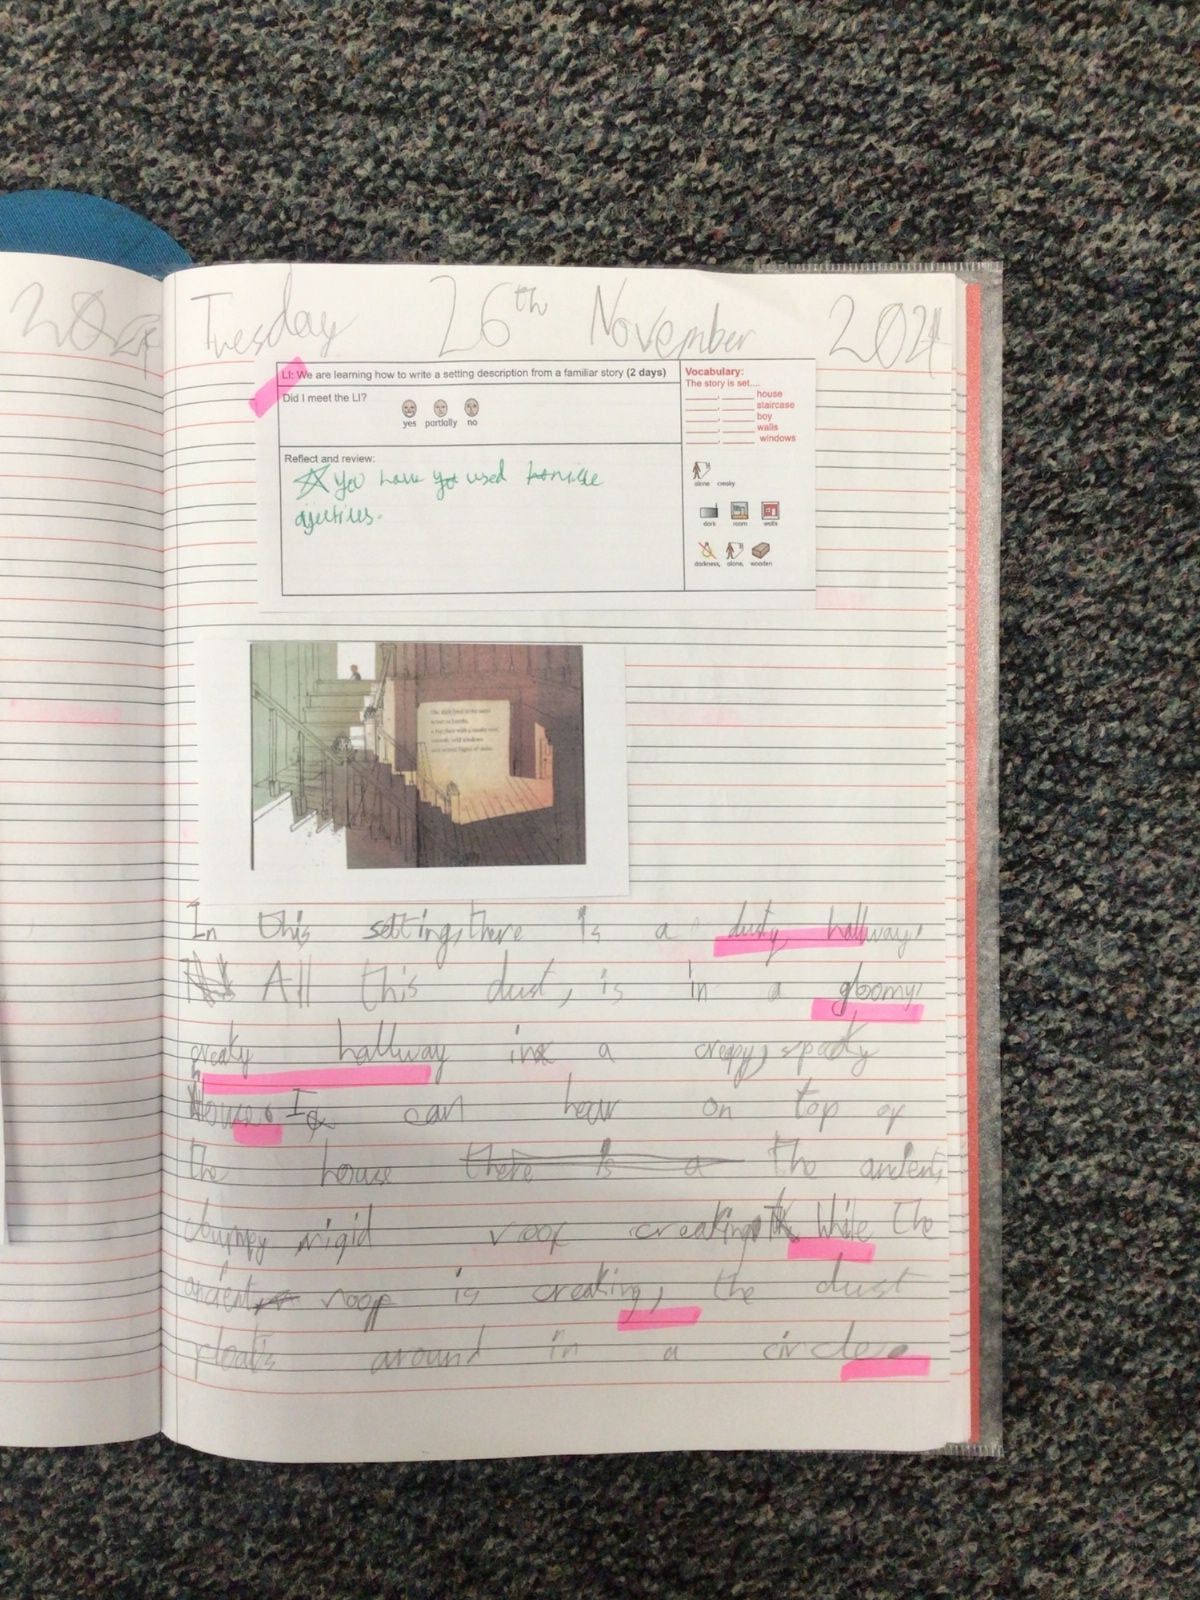 2024
Tuesday 26th November 2024
LI: We are learning how to write a setting description from a familiar story (2 days)
Did I meet the LI?
yes partially no
Reflect and review:
you have used
Vocabulary:
The story is set....
_____, _____ house
_____, _____ staircase
_____, _____ boy
_____, _____ walls
_____, _____ windows
alone creaky
dark room walls
darkness, alone, wooden
In this setting, there is a dusty hallway.
All this dust, is in a gloomy,
hallway in a creepy, spooky
house. I can hear on top of
the house there is a the ancient,
rigid roof creaking. While the
ancient roof is creaking, the dust
floats around in a circle.